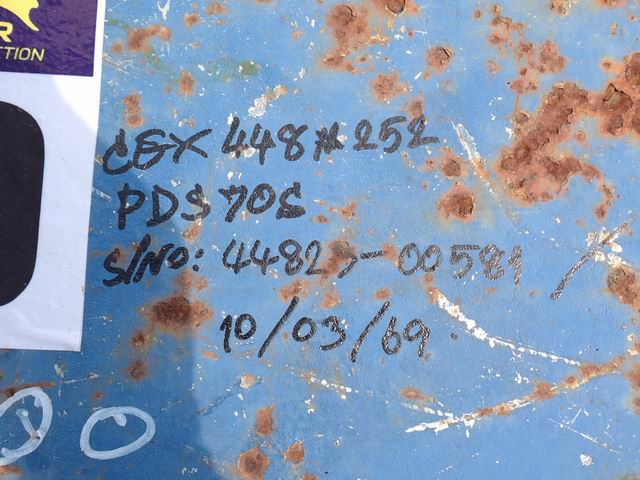 R
CTION
CGX 448 M 252
PDS 70S
S/NO: 4482 -00581 /
10/03/69.
00